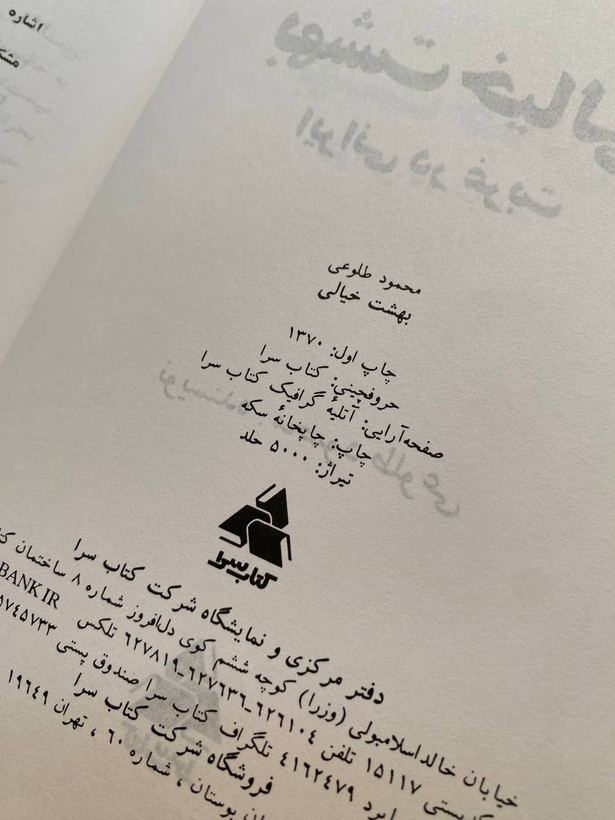 اشاره
بهشت خیالی
ایرانی در غربت
محمود طلوعی
بهشت خیالی
چاپ اول: ۱۳۷۰
حروفچینی: کتاب سرا
صفحه‌آرایی: آتلیهٔ گرافیک کتاب سرا
چاپ: چاپخانهٔ سکه
تیراژ: ۵۰۰۰ جلد
کتاب‌سرا
دفتر مرکزی و نمایشگاه شرکت کتاب سرا
خیابان خالداسلامبولی (وزرا) کوچه ششم کوی دل‌افروز شماره ۸ ساختمان
پستی ۱۵۱۱۷ تلفن ۶۲۶۱۰۴-۶۲۷۶۳۶-۶۲۷۸۱۹ تلکس BANK IR
۴۱۶۲۴۷۹ تلگراف کتاب سرا صندوق پستی
فروشگاه شرکت کتاب سرا
بوستان ، شماره ۶۰ ، تهران ۱۹۶۴۹